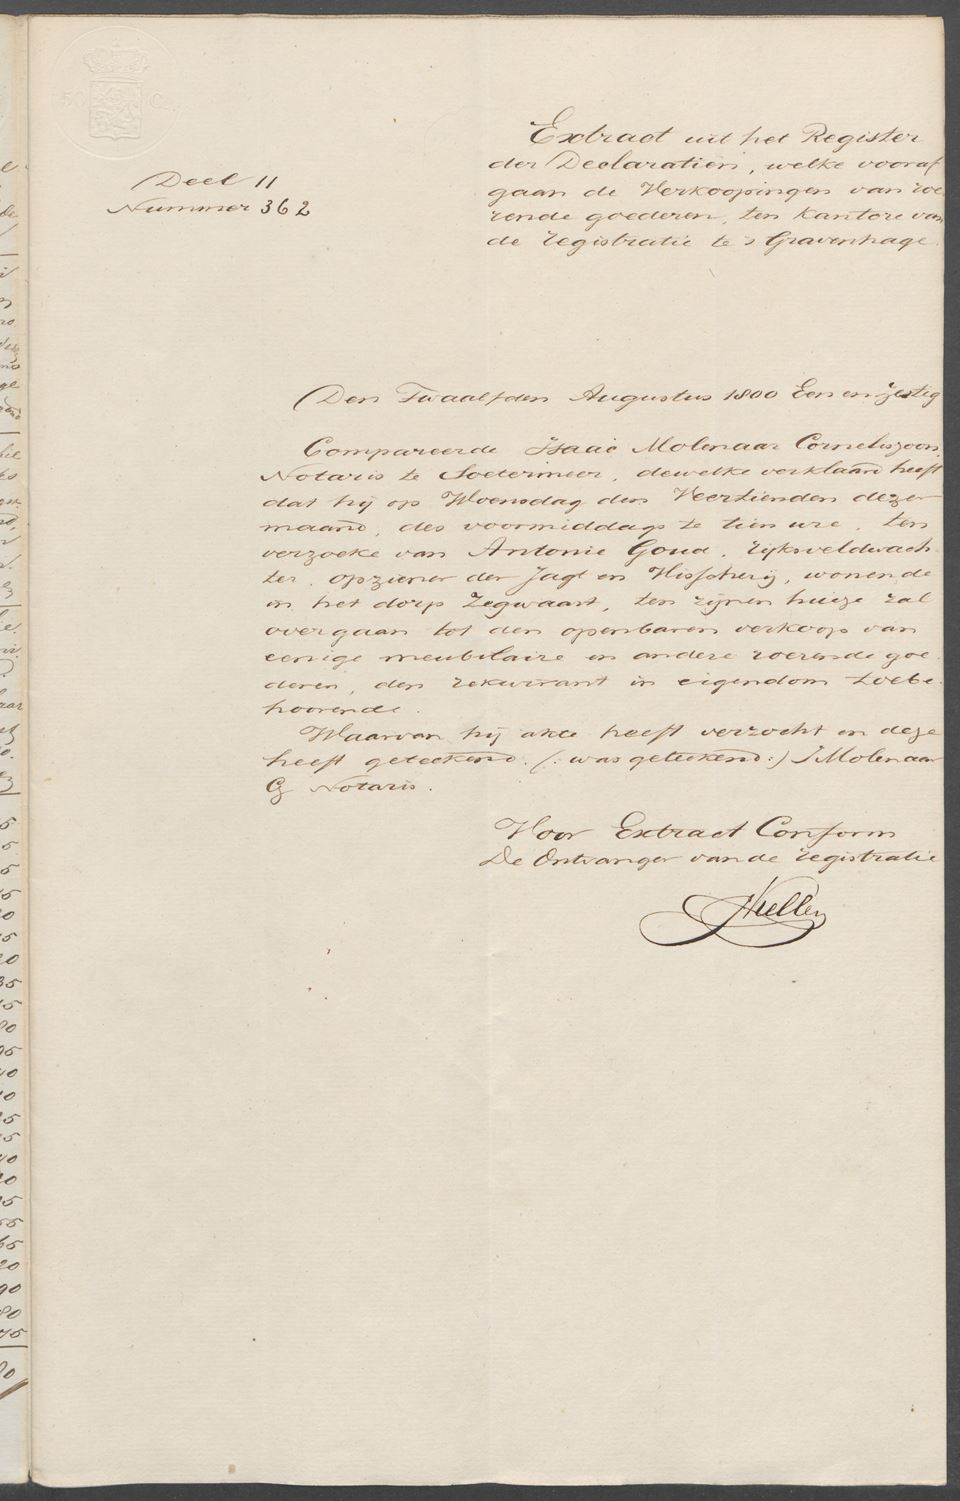 50 C.
Deel 11
Nummer 362
Extract uit het Register
der Declaratien, welke vooraf
gaan de Verkoopingen van roe-
rende goederen, ten kantore van
de registratie te 's Gravenhage.
Den Twaalfden Augustus 1800 Een en zestig
Compareerde Isaac Molenaar Corneliszoon,
Notaris te Soetermeer, dewelke verklaard heeft
dat hij op Woensdag den Veertienden dezer
maand, des voormiddags te tien ure, ten
verzoeke van Antonie Goud, rijksveldwach-
ter, opziener der Jagt en Visscherij, wonende
in het dorp Zegwaart, ten zijnen huize zal
overgaan tot den openbaren verkoop van
eenige meubelaire en andere roerende goe-
deren, den rekwirant in eigendom toebe-
hoorende.
Waarvan hij akte heeft verzocht en deze
heeft geteekend. (: was geteekend :) I Molenaar
Cz Notaris.
Voor Extract Conform
De Ontvanger van de registratie